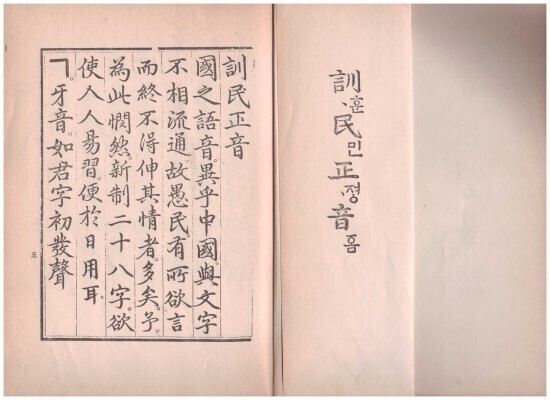 訓·훈民민正·졍音ᅙᅳᆷ
訓民正音
國之語音。異乎中國。與文字
不相流通。故愚民有所欲言
而終不得伸其情者。多矣。予
為此憫然。新制二十八字。欲
使人人易習。便於日用耳。
ㄱ。牙音。如君字初發聲
五